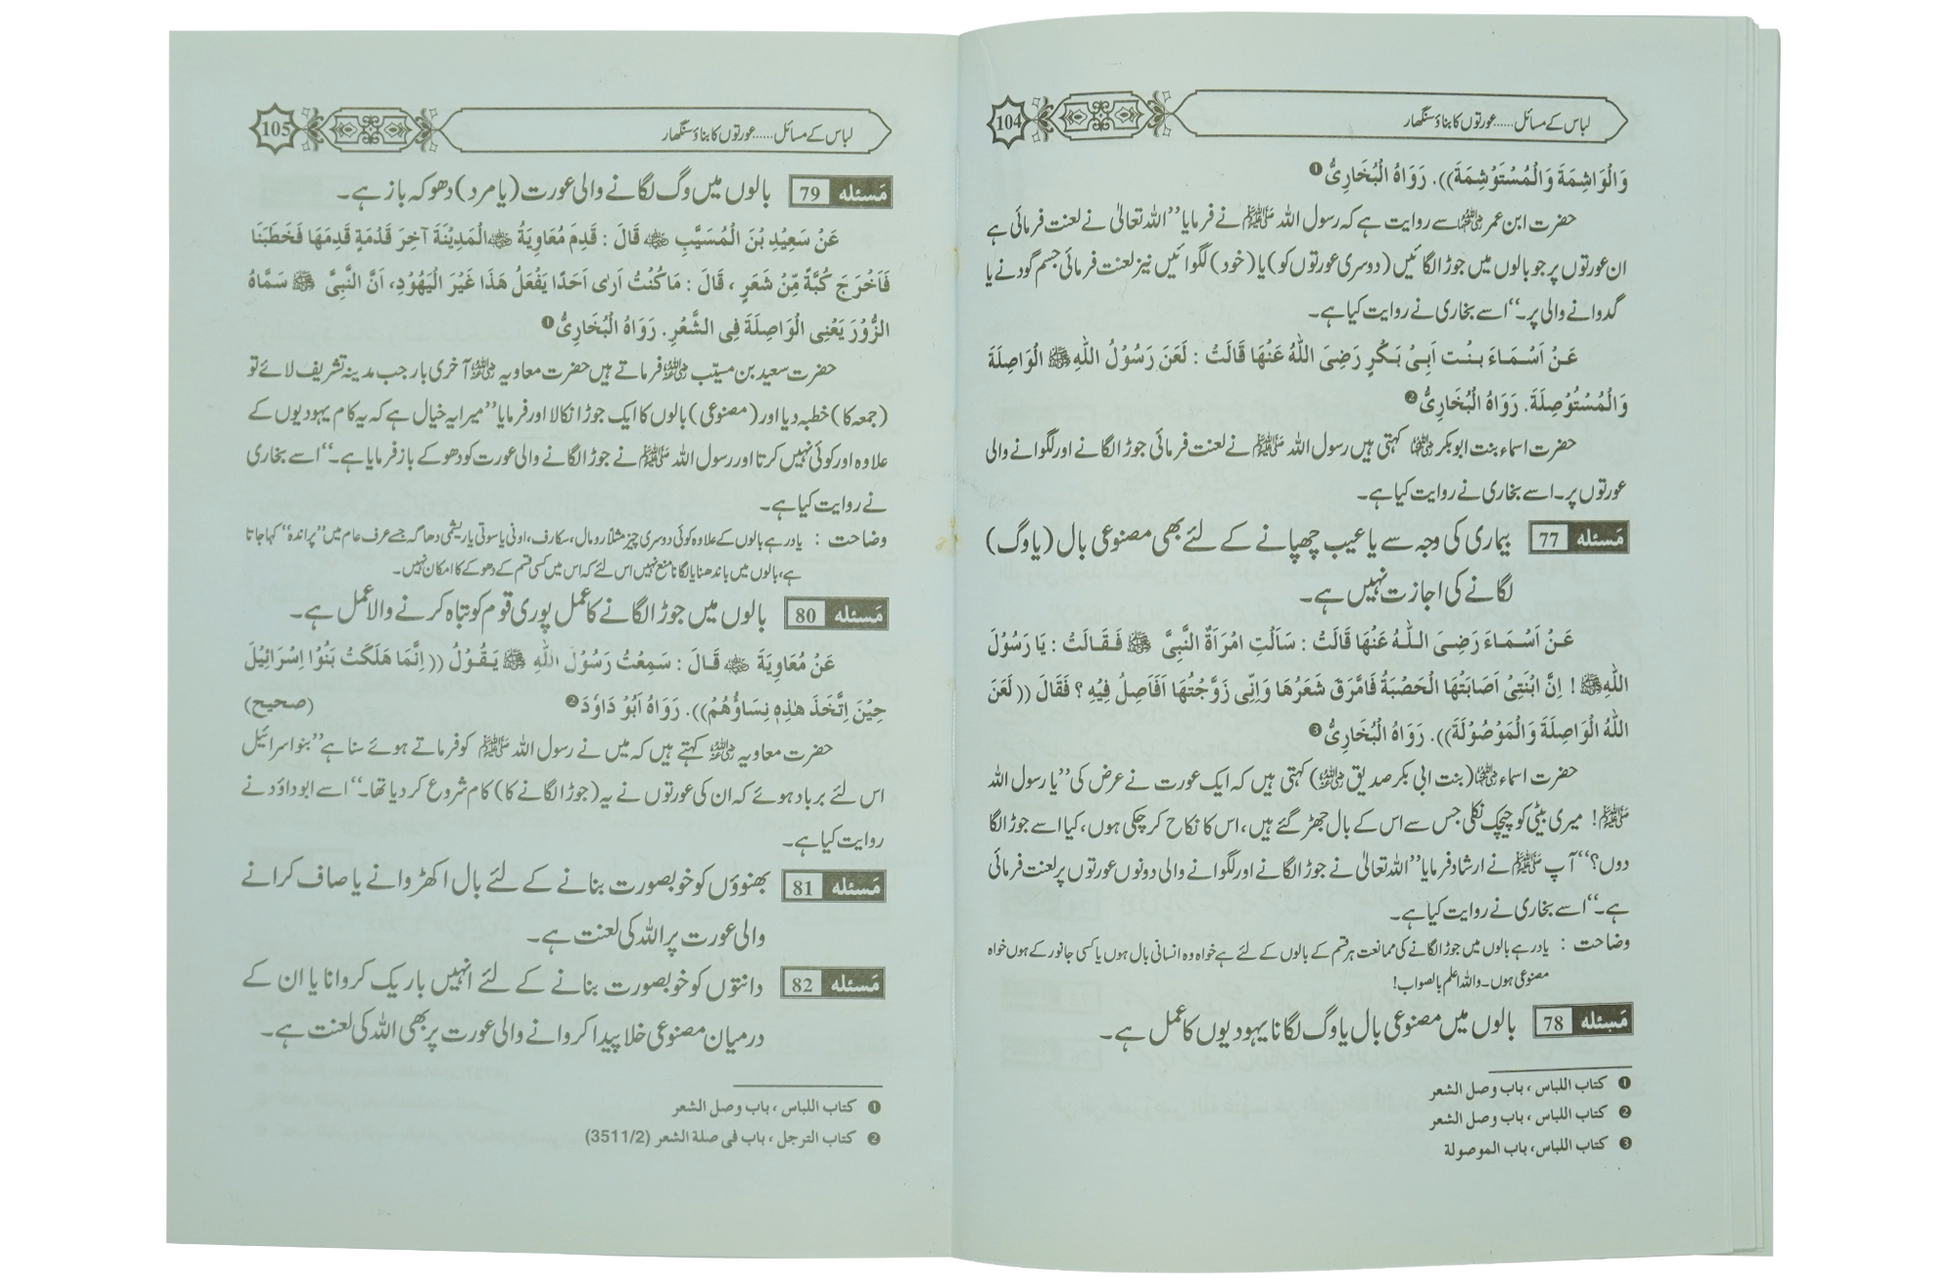 104
لباس کے مسائل......عورتوں کا بناؤ سنگھار
وَالْوَاشِمَةَ وَالْمُسْتَوْشِمَةَ)). رَوَاهُ الْبُخَارِىُّ ❶
حضرت ابن عمر رضی اللہ عنہما سے روایت ہے کہ رسول اللہ ﷺ نے فرمایا ’’اللہ تعالیٰ نے لعنت فرمائی ہے
ان عورتوں پر جو بالوں میں جوڑا لگائیں (دوسری عورتوں کو) یا (خود) لگوائیں نیز لعنت فرمائی جسم گودنے یا
گدوانے والی پر۔‘‘ اسے بخاری نے روایت کیا ہے۔
عَنْ اَسْمَاءَ بِنْت اَبِىْ بَكْرٍ رَضِىَ اللّٰهُ عَنْهَا قَالَتْ : لَعَنَ رَسُوْلُ اللّٰهِ ﷺ الْوَاصِلَةَ
وَالْمُسْتَوْصِلَةَ. رَوَاهُ الْبُخَارِىُّ ❷
حضرت اسماء بنت ابوبکر رضی اللہ عنہا کہتی ہیں رسول اللہ ﷺ نے لعنت فرمائی جوڑا لگانے اور لگوانے والی
عورتوں پر۔ اسے بخاری نے روایت کیا ہے۔
مَسئله 77 بیماری کی وجہ سے یا عیب چھپانے کے لئے بھی مصنوعی بال (یا وگ)
لگانے کی اجازت نہیں ہے۔
عَنْ اَسْمَاءَ رَضِىَ اللّٰهُ عَنْهَا قَالَتْ : سَاَلَتِ امْرَاَةٌ النَّبِىَّ ﷺ فَقَالَتْ : يَا رَسُوْلَ
اللّٰهِ ﷺ ! اِنَّ ابْنَتِىْ اَصَابَتْهَا الْحَصْبَةُ فَامَّرَقَ شَعَرُهَا وَاِنِّى زَوَّجْتُهَا اَفَاَصِلُ فِيْهِ ؟ فَقَالَ (( لَعَنَ
اللّٰهُ الْوَاصِلَةَ وَالْمَوْصُوْلَةَ)). رَوَاهُ الْبُخَارِىُّ ❸
حضرت اسماء رضی اللہ عنہا (بنت ابی بکر صدیق رضی اللہ عنہ) کہتی ہیں کہ ایک عورت نے عرض کی ’’یا رسول اللہ
ﷺ! میری بیٹی کو چیچک نکلی جس سے اس کے بال جھڑ گئے ہیں، اس کا نکاح کر چکی ہوں، کیا اسے جوڑا لگا
دوں؟‘‘ آپ ﷺ نے ارشاد فرمایا ’’اللہ تعالیٰ نے جوڑا لگانے اور لگوانے والی دونوں عورتوں پر لعنت فرمائی
ہے۔‘‘ اسے بخاری نے روایت کیا ہے۔
وضاحت : یاد رہے بالوں میں جوڑا لگانے کی ممانعت ہر قسم کے بالوں کے لئے ہے خواہ وہ انسانی بال ہوں یا کسی جانور کے ہوں خواہ
مصنوعی ہوں۔ واللہ اعلم بالصواب!
مَسئله 78 بالوں میں مصنوعی بال یا وگ لگانا یہودیوں کا عمل ہے۔
❶ كتاب اللباس ، باب وصل الشعر
❷ كتاب اللباس ، باب وصل الشعر
❸ كتاب اللباس، باب الموصولة
105
لباس کے مسائل......عورتوں کا بناؤ سنگھار
مَسئله 79 بالوں میں وگ لگانے والی عورت (یا مرد) دھوکہ باز ہے۔
عَنْ سَعِيْدِ بْنِ الْمُسَيَّبِ رضی اللہ عنہ قَالَ : قَدِمَ مُعَاوِيَةُ رضی اللہ عنہ الْمَدِيْنَةَ آخِرَ قَدْمَةٍ قَدِمَهَا فَخَطَبَنَا
فَاَخْرَجَ كُبَّةً مِّنْ شَعَرٍ ، قَالَ : مَا كُنْتُ اَرٰى اَحَدًا يَفْعَلُ هَذَا غَيْرَ الْيَهُوْدِ، اَنَّ النَّبِىَّ ﷺ سَمَّاهُ
الزُّوْرَ يَعْنِى الْوَاصِلَةَ فِى الشَّعْرِ. رَوَاهُ الْبُخَارِىُّ ❶
حضرت سعید بن مسیّب رضی اللہ عنہ فرماتے ہیں حضرت معاویہ رضی اللہ عنہ آخری بار جب مدینہ تشریف لائے تو
(جمعہ کا) خطبہ دیا اور (مصنوعی) بالوں کا ایک جوڑا نکالا اور فرمایا ’’میرا یہ خیال ہے کہ یہ کام یہودیوں کے
علاوہ اور کوئی نہیں کرتا اور رسول اللہ ﷺ نے جوڑا لگانے والی عورت کو دھوکے باز فرمایا ہے۔‘‘ اسے بخاری
نے روایت کیا ہے۔
وضاحت : یاد رہے بالوں کے علاوہ کوئی دوسری چیز مثلاً رومال، سکارف، اونی یا سوتی یا ریشمی دھاگہ جسے عرف عام میں ’’پراندہ‘‘ کہا جاتا
ہے، بالوں میں باندھنا یا لگانا منع نہیں اس لئے کہ اس میں کسی قسم کے دھوکے کا امکان نہیں۔
مَسئله 80 بالوں میں جوڑا لگانے کا عمل پوری قوم کو تباہ کرنے والا عمل ہے۔
عَنْ مُعَاوِيَةَ رضی اللہ عنہ قَالَ : سَمِعْتُ رَسُوْلَ اللّٰهِ ﷺ يَقُوْلُ (( اِنَّمَا هَلَكَتْ بَنُوْا اِسْرَائِيْلَ
حِيْنَ اِتَّخَذَ هٰذِهٖ نِسَاؤُهُمْ)). رَوَاهُ اَبُوْ دَاوٗدَ ❷ (صحيح)
حضرت معاویہ رضی اللہ عنہ کہتے ہیں کہ میں نے رسول اللہ ﷺ کو فرماتے ہوئے سنا ہے ’’بنو اسرائیل
اس لئے برباد ہوئے کہ ان کی عورتوں نے یہ (جوڑا لگانے کا) کام شروع کر دیا تھا۔‘‘ اسے ابوداؤد نے
روایت کیا ہے۔
مَسئله 81 بھنوؤں کو خوبصورت بنانے کے لئے بال اکھڑوانے یا صاف کرانے
والی عورت پر اللہ کی لعنت ہے۔
مَسئله 82 دانتوں کو خوبصورت بنانے کے لئے انہیں باریک کروانا یا ان کے
درمیان مصنوعی خلا پیدا کروانے والی عورت پر بھی اللہ کی لعنت ہے۔
❶ كتاب اللباس ، باب وصل الشعر
❷ كتاب الترجل ، باب فى صلة الشعر (3511/2)